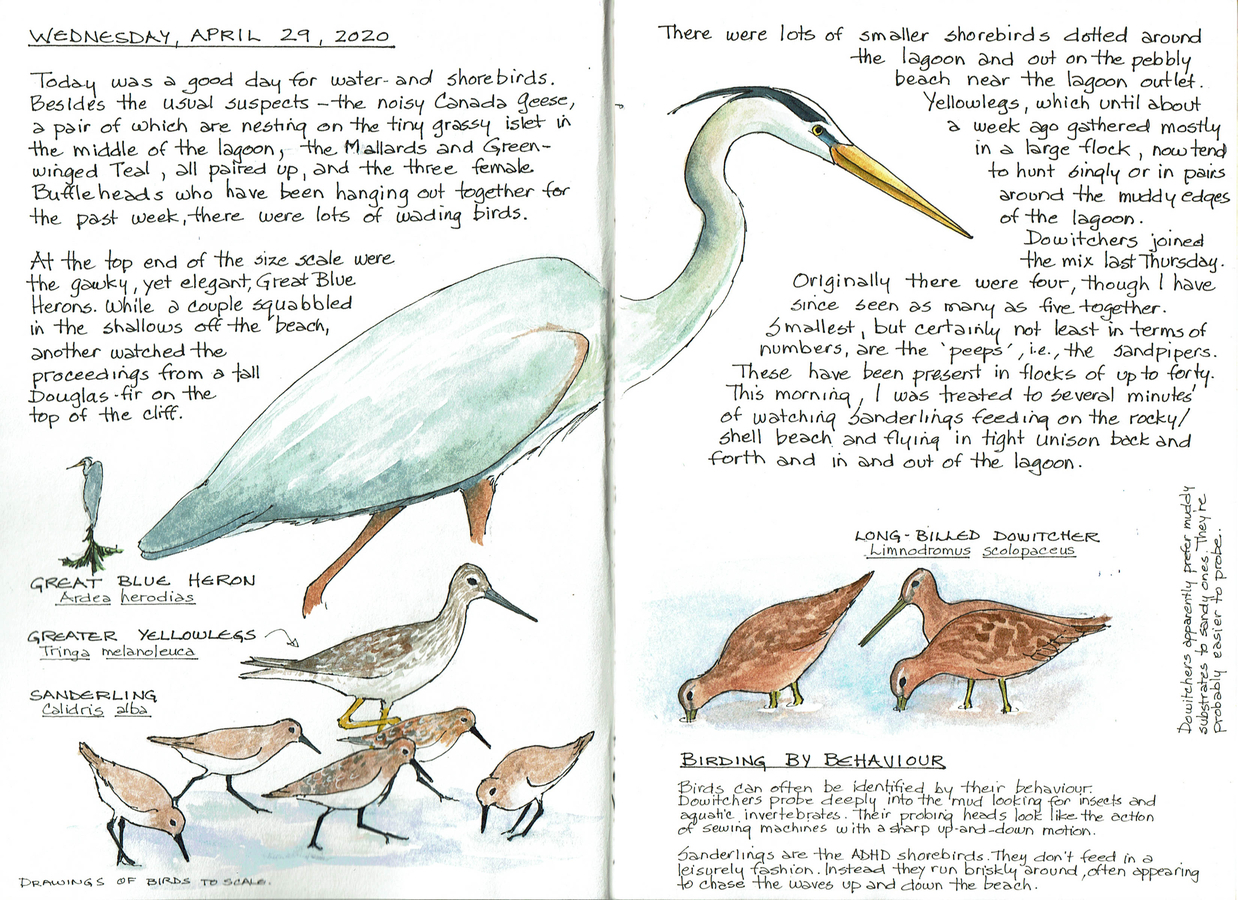 WEDNESDAY, APRIL 29, 2020
Today was a good day for water- and shorebirds.
Besides the usual suspects – the noisy Canada geese,
a pair of which are nesting on the tiny grassy islet in
the middle of the lagoon, the Mallards and Green-
winged Teal, all paired up, and the three female
Buffleheads who have been hanging out together for
the past week, there were lots of wading birds.
At the top end of the size scale were
the gawky, yet elegant, Great Blue
Herons. While a couple squabbled
in the shallows off the beach,
another watched the
proceedings from a tall
Douglas-fir on the
top of the cliff.
GREAT BLUE HERON
Ardea herodias
GREATER YELLOWLEGS
Tringa melanoleuca
SANDERLING
Calidris alba
DRAWINGS OF BIRDS TO SCALE.
There were lots of smaller shorebirds dotted around
the lagoon and out on the pebbly
beach near the lagoon outlet.
Yellowlegs, which until about
a week ago gathered mostly
in a large flock, now tend
to hunt singly or in pairs
around the muddy edges
of the lagoon.
Dowitchers joined
the mix last Thursday.
Originally there were four, though I have
since seen as many as five together.
Smallest, but certainly not least in terms of
numbers, are the 'peeps', i.e., the sandpipers.
These have been present in flocks of up to forty.
This morning, I was treated to several minutes'
of watching Sanderlings feeding on the rocky/
shell beach and flying in tight unison back and
forth and in and out of the lagoon.
LONG-BILLED DOWITCHER
Limnodromus scolopaceus
Dowitchers apparently prefer muddy
substrates to sandy ones. They're
probably easier to probe.
BIRDING BY BEHAVIOUR
Birds can often be identified by their behaviour.
Dowitchers probe deeply into the mud looking for insects and
aquatic invertebrates. Their probing heads look like the action
of sewing machines with a sharp up-and-down motion.
Sanderlings are the ADHD shorebirds. They don't feed in a
leisurely fashion. Instead they run briskly around, often appearing
to chase the waves up and down the beach.